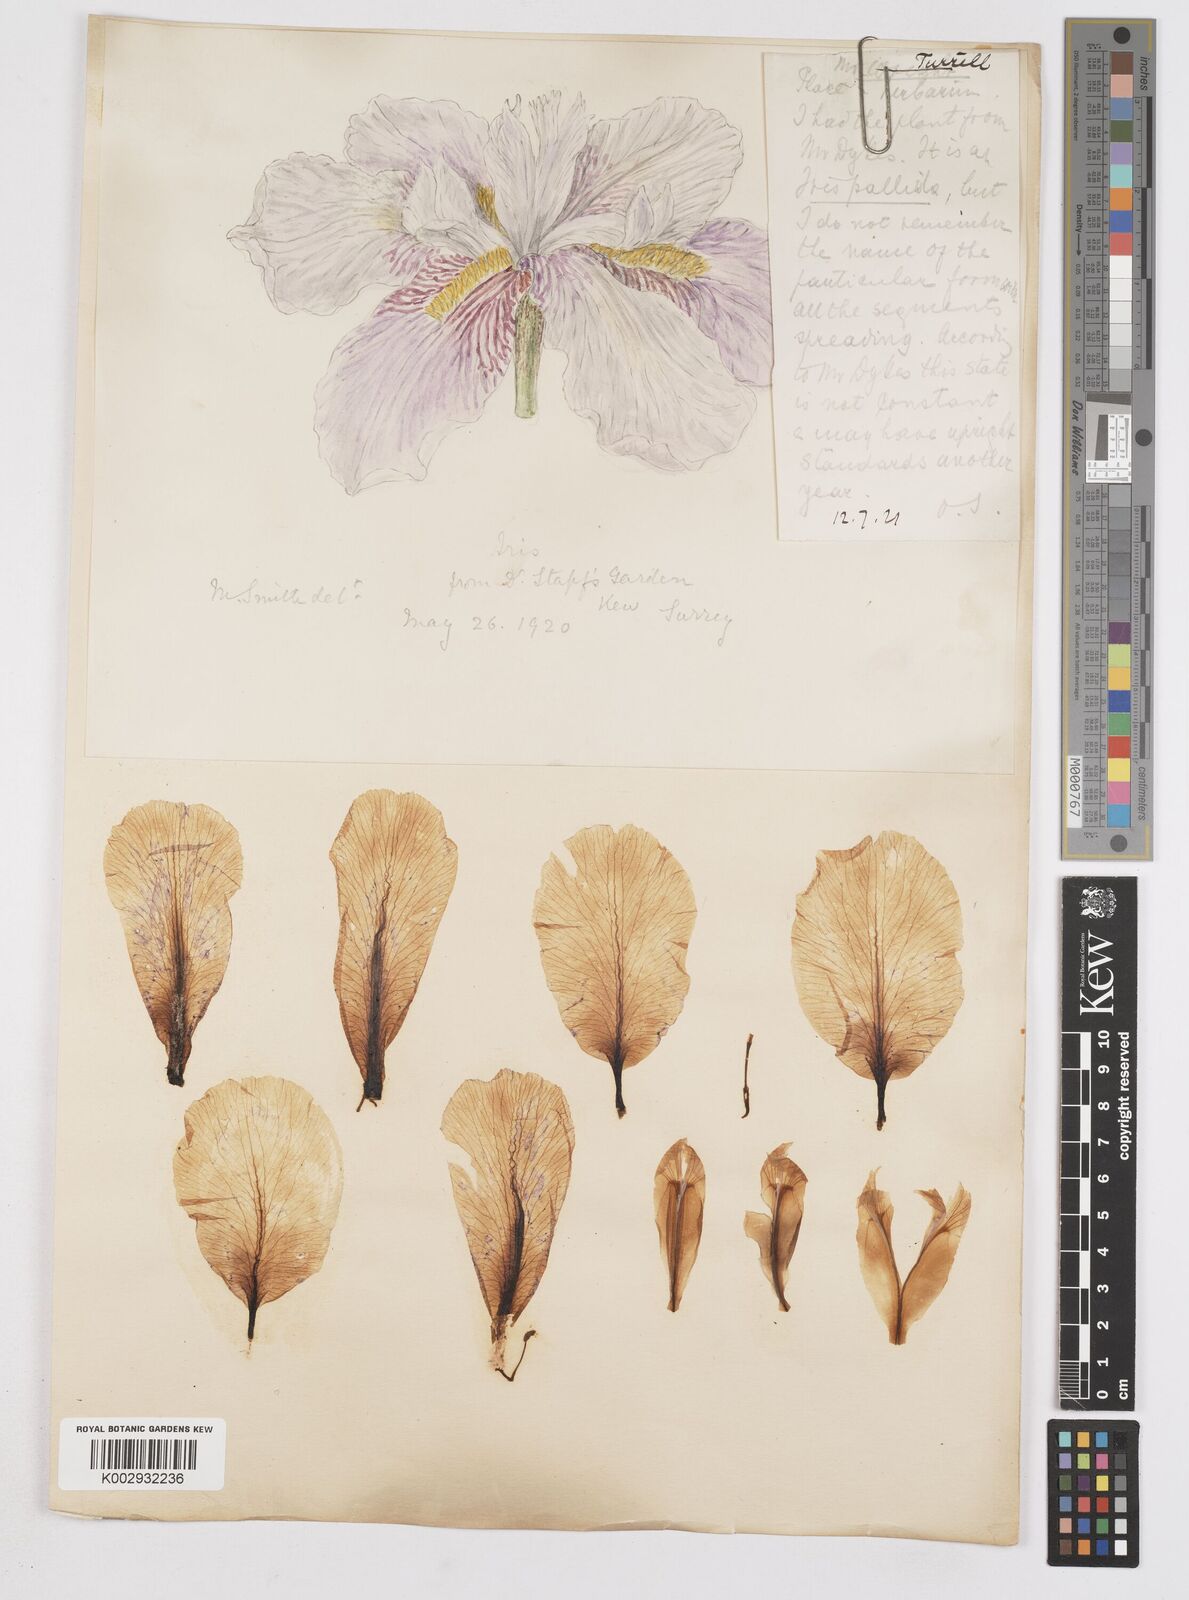 Turrill
Place in Herbarium.
I had the plant from
Mr Dykes. It is a
Iris pallida, but
I do not remember
the name of the
particular form
all the segments
spreading. Accordig
to Mr Dykes this state
is not constant
& may have upright
standards another
year.
12.7.21 O.S.
Iris
from Dr. Stapf's Garden
Kew Surrey
M. Smith delt.
May 26. 1920
ROYAL BOTANIC GARDENS KEW
K002932236
inches
centimeters
Density
Don Williams
M000767
Royal Botanic Gardens
Kew
0 1 2 3 4 5 6 7 8 9 10
cm
copyright reserved